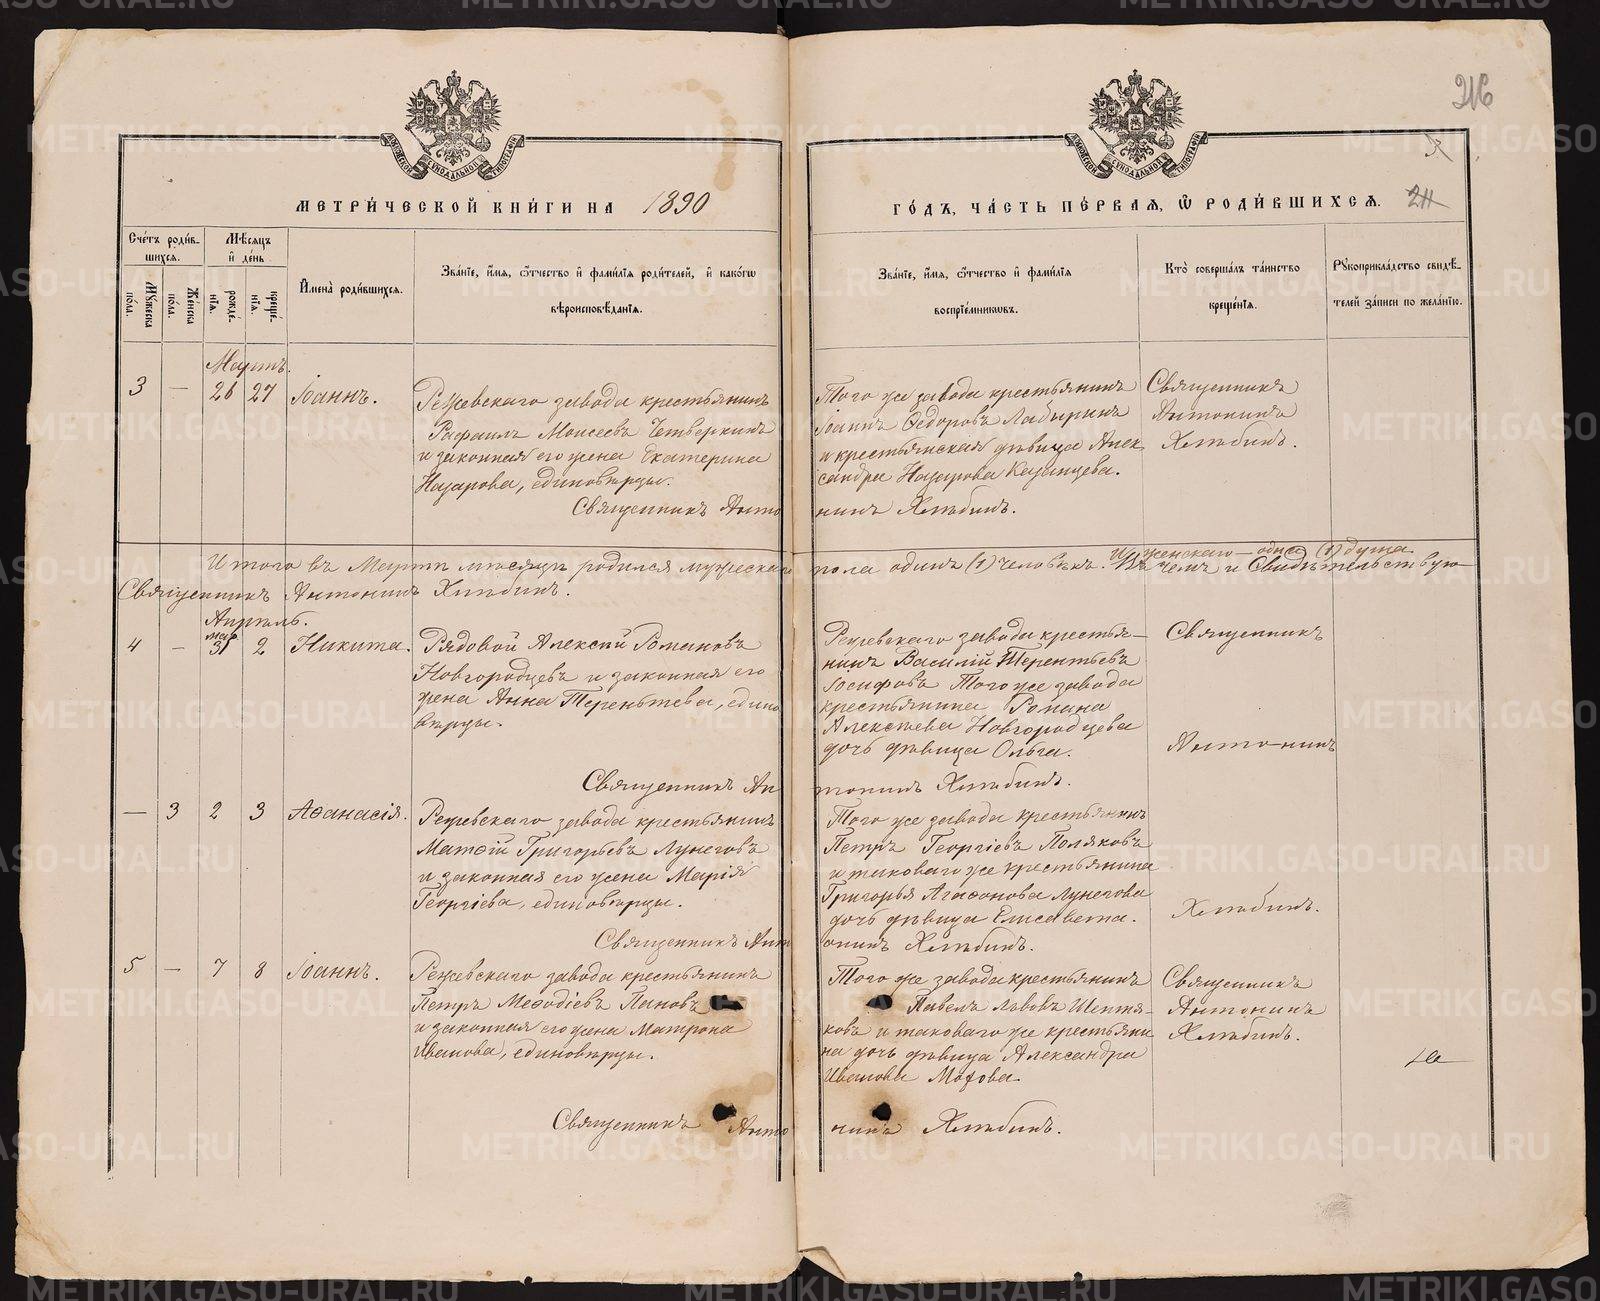 216
3
24
МЕТРИ́ЧЕСКОЙ КНИ́ГИ НА 1890
ГО́ДЪ, ЧА́СТЬ ПЕ́РВАЯ, Ѿ РОДИ́ВШИХСЯ.
Сче́тъ роди́вшихся.
Мѣ́сяцъ и҆ де́нь
Му́жеска по́ла.
Же́нска по́ла.
рожде́нїя.
креще́нїя.
И҆мена̀ роди́вшихся.
Зва́нїе, и҆́мя, ѻ҆́тчество и҆ фами́лїя роди́телей, и҆ како́гѡ
вѣроисповѣ́данїя.
Зва́нїе, и҆́мя, ѻ҆́тчество и҆ фами́лїя
воспрїе́мникѡвъ.
Кто̀ соверша́лъ та́инство
креще́нїя.
Рꙋкоприкла́дство свидѣ́-
телей за́писи по жела́нїю.
Мартъ.
3 — 26 27 Іоаннъ.
Режевскаго завода крестьянинъ
Рафаилъ Моисеевъ Четверкинъ
и законная его жена Екатерина
Назарова, единовѣрцы.
Священникъ Анто
Того же завода крестьянинъ
Іоаннъ Ѳедоровъ Лабыринъ
и крестьянская дѣвица Алек
сандра Назарова Казанцева.
нинъ Хлѣбинъ.
Священникъ
Антонинъ
Хлѣбинъ.
Итого въ Мартѣ мѣсяцѣ родился мужескаго пола одинъ (1) человѣкъ. И женскаго — одна (1) душа
Въ чемъ и Свидѣтельствую
Священникъ Антонинъ Хлѣбинъ.
Апрѣль.
мар.
4 — 31 2 Никита.
Рядовой Алексій Романовъ
Новгородцевъ и законная его
жена Анна Терентьева, едино
вѣрцы.
Священникъ Ан
Режевскаго завода крестья-
нинъ Василій Терентьевъ
Іосифовъ Того же завода
крестьянина Романа
Алексѣева Новгородцева
дочь дѣвица Ольга.
тонинъ Хлѣбинъ.
Священникъ
Антонинъ
— 3 2 3 Аѳанасія.
Режевскаго завода крестьянинъ
Матѳій Григорьевъ Лунеговъ
и законная его жена Марія
Георгіева, единовѣрцы.
Священникъ Ант
Того же завода крестьянинъ
Петръ Георгіевъ Поляковъ
и таковаго же крестьянина
Григорья Агаѳонова Лунегова
дочь дѣвица Елисавета.
онинъ Хлѣбинъ.
Хлѣбинъ.
5 — 7 8 Іоаннъ.
Режевскаго завода крестьянинъ
Петръ Меѳодіевъ Пановъ
и законная его жена Матрона
Иванова, единовѣрцы.
Священникъ Анто
Того же завода крестьянинъ
Павелъ Львовъ Шептя-
ковъ и таковаго же крестьяни
на дочь дѣвица Александра
Иванова Мохова.
нинъ Хлѣбинъ.
Священникъ
Антонинъ
Хлѣбинъ.
METRIKI.GASO-URAL.RU